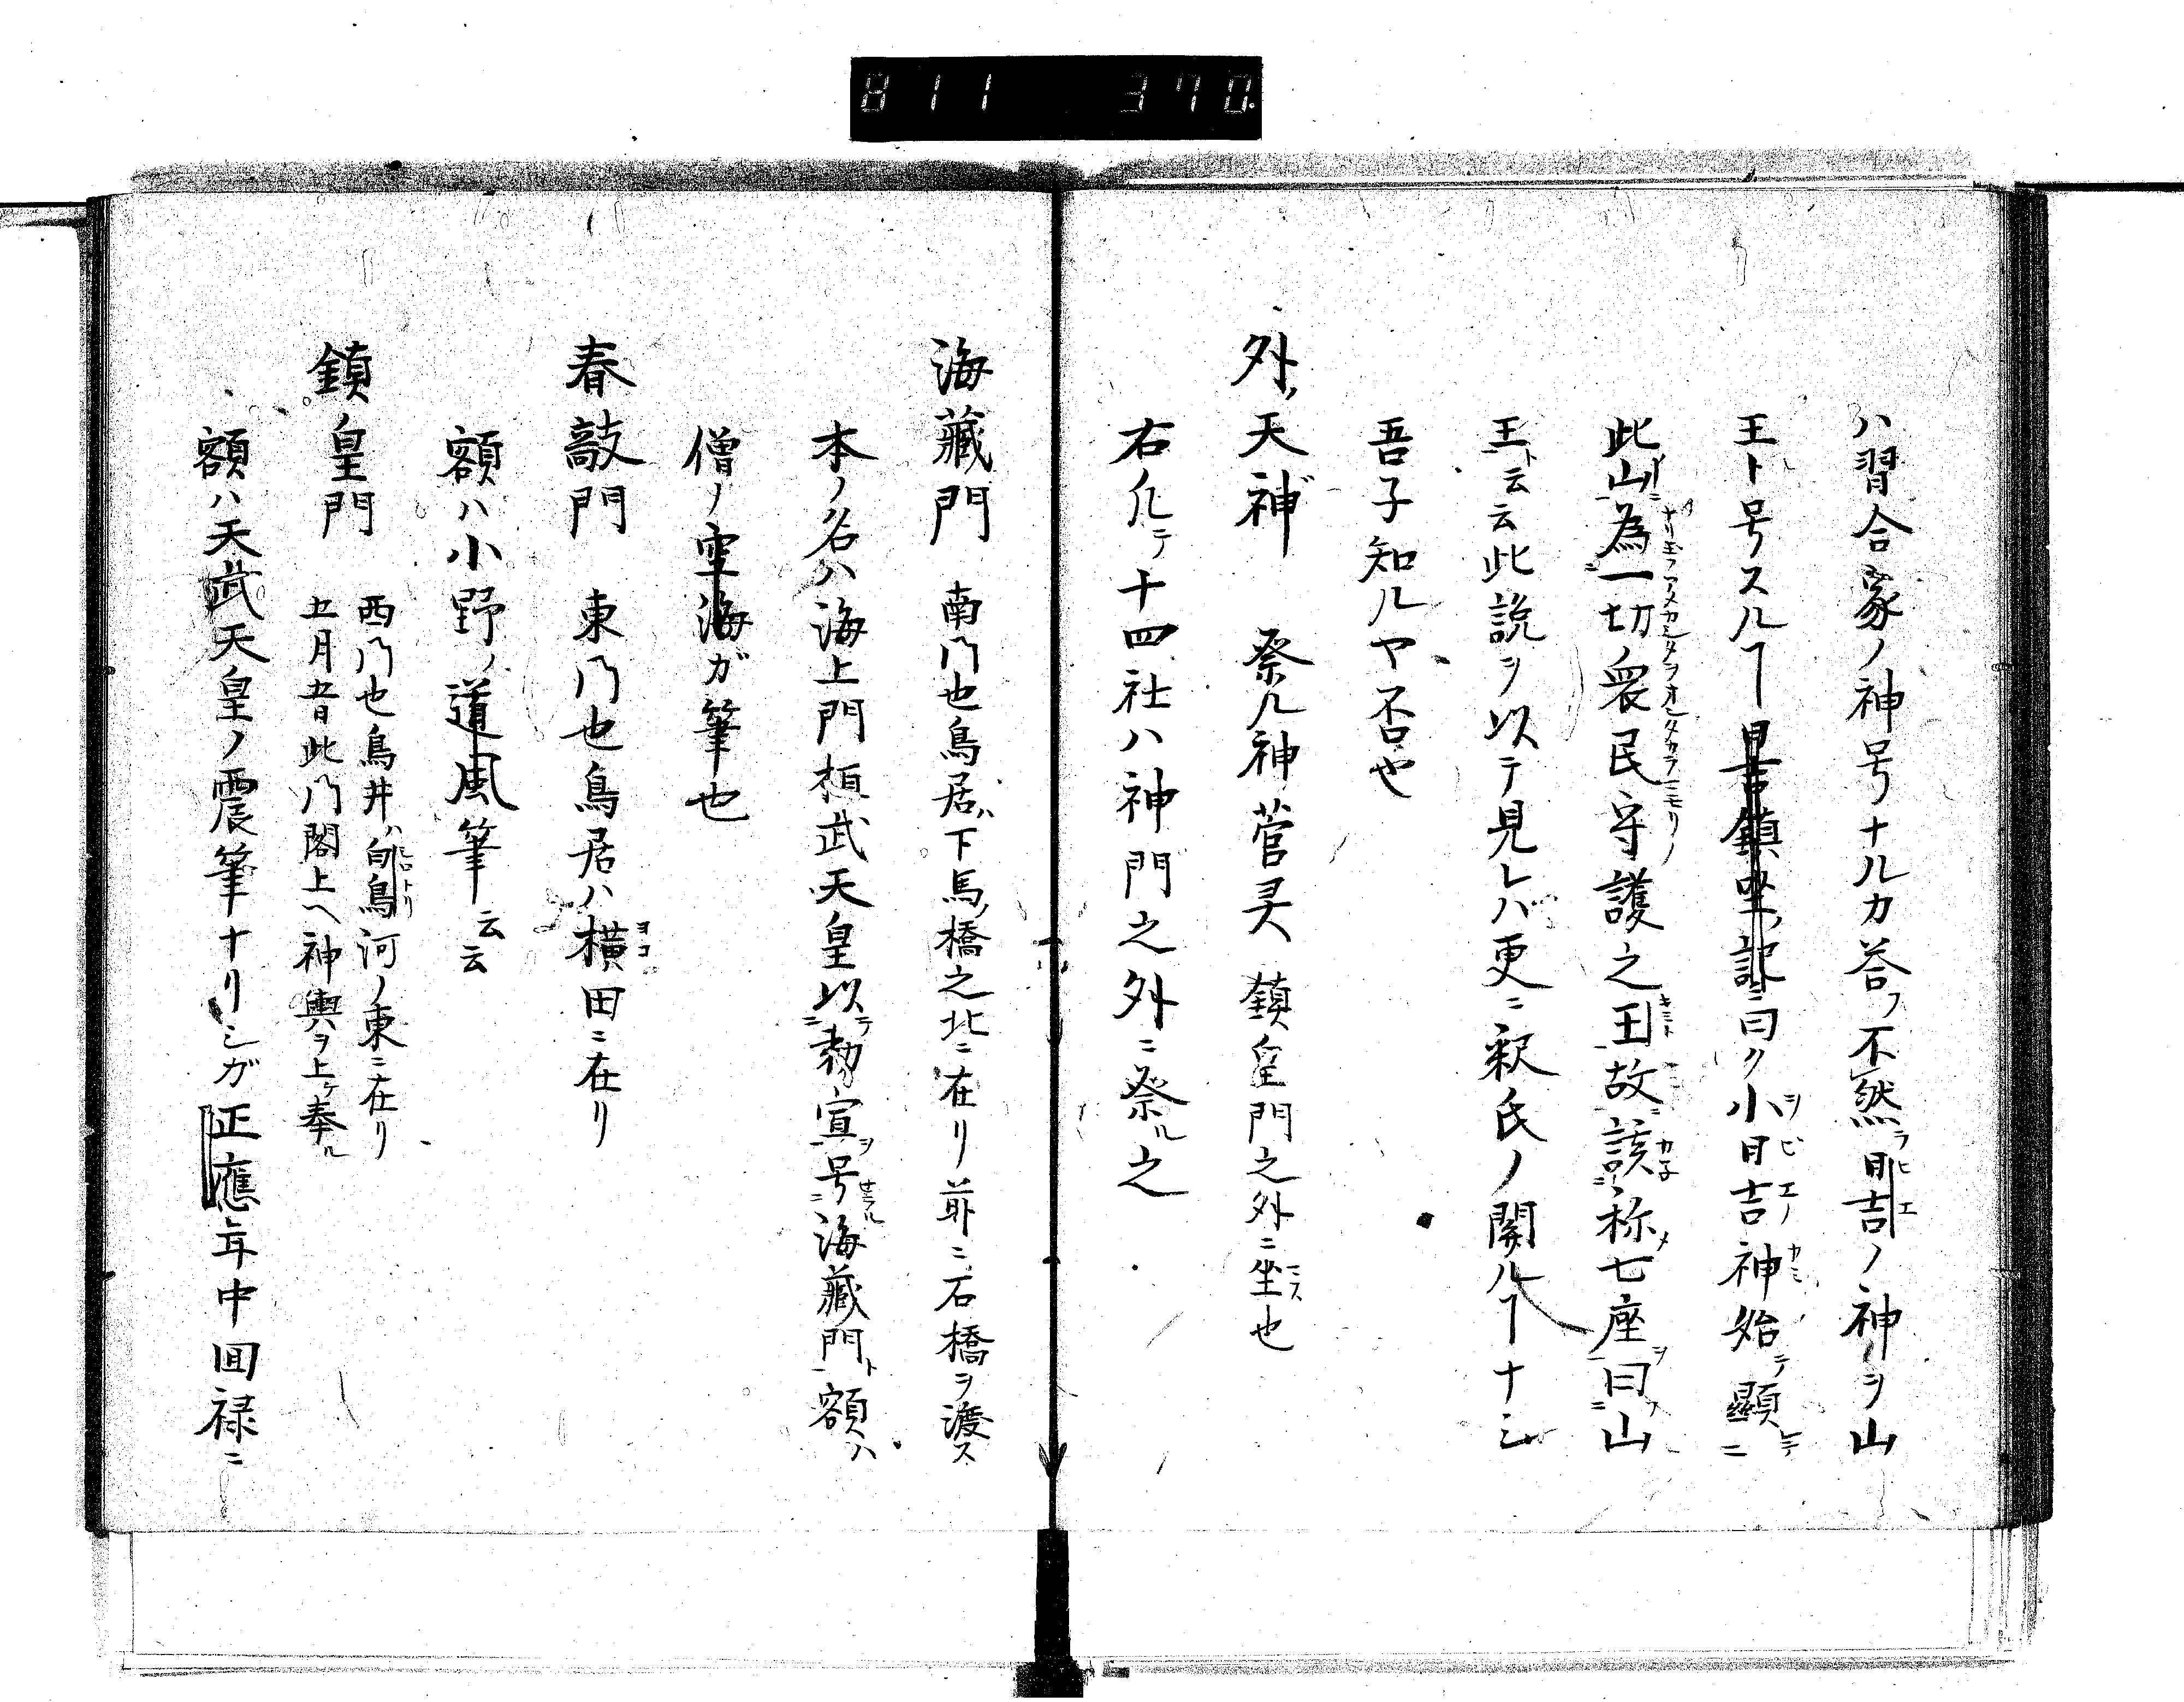 811 370.
ハ習合家ノ神号ナルカ答フ不然日吉ノ神ヲ山
王ト号スルヿ日吉鎮坐記ニ曰ク小日吉神始テ顕
此山為一切衆民守護之王故ニ該称七座曰山
王ト云云此説ヲ以テ見レバ更ニ釈氏ノ関ルヿナシ
吾子知ルヤ否や
外ノ天神 祭ル神菅灵 鎮皇門之外ニ坐也
右凡テ十四社ハ神門之外ニ祭ル之
海藏門 南门也鳥居ハ下馬橋之北ニ在リ前ニ石橋ヲ渡ス
本ノ名ハ海上門桓武天皇以勅宣号海藏門ト額ハ
僧ノ空海ガ筆也
春敲門 東门也鳥居ハ横田ニ在リ
額ハ小野ノ道風筆云云
鎮皇門 西门也鳥井ハ白鳥河ノ東ニ在リ
五月五日此门閣上ヘ神輿ヲ上ケ奉ル
額ハ天武天皇ノ震筆ナリシガ正應年中回禄ニ